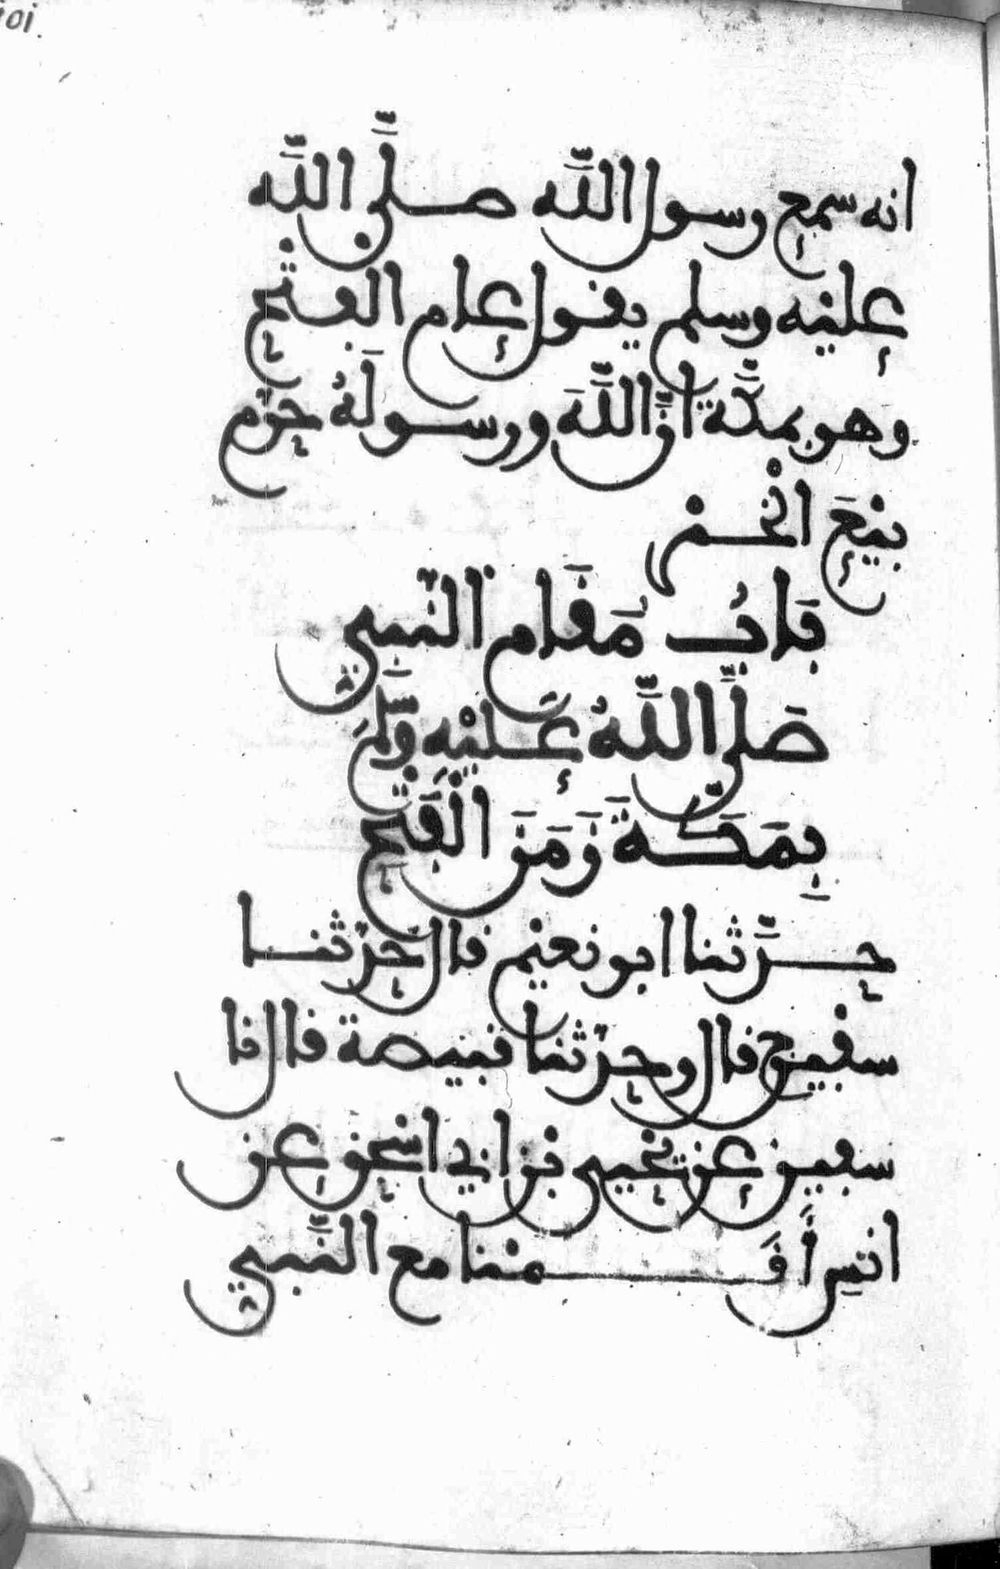 101.
انه سمع رسول اللّه صلّى اللّه
عليه وسلم يقول عام الفتح
وهو بمكّة انّ اللّهَ ورسولَهُ حرّم
بيْعَ الخمْر
بَابُ مَقَام النّبيِ
صَلَّى اللَّهُ عَلَيْهِ وَسَلَّمَ
بِمَكَّةَ زَمَنَ الْفَتْحِ
حدّثنا ابو نعيْم قال حدّثنا
سفْيٰن قال وحدّثنا قبيصة قال نا
سفيٰن عن يحْيى بن ابي اسْحٰق عن
انسٍ أَقَمْنا مع النّبيِ